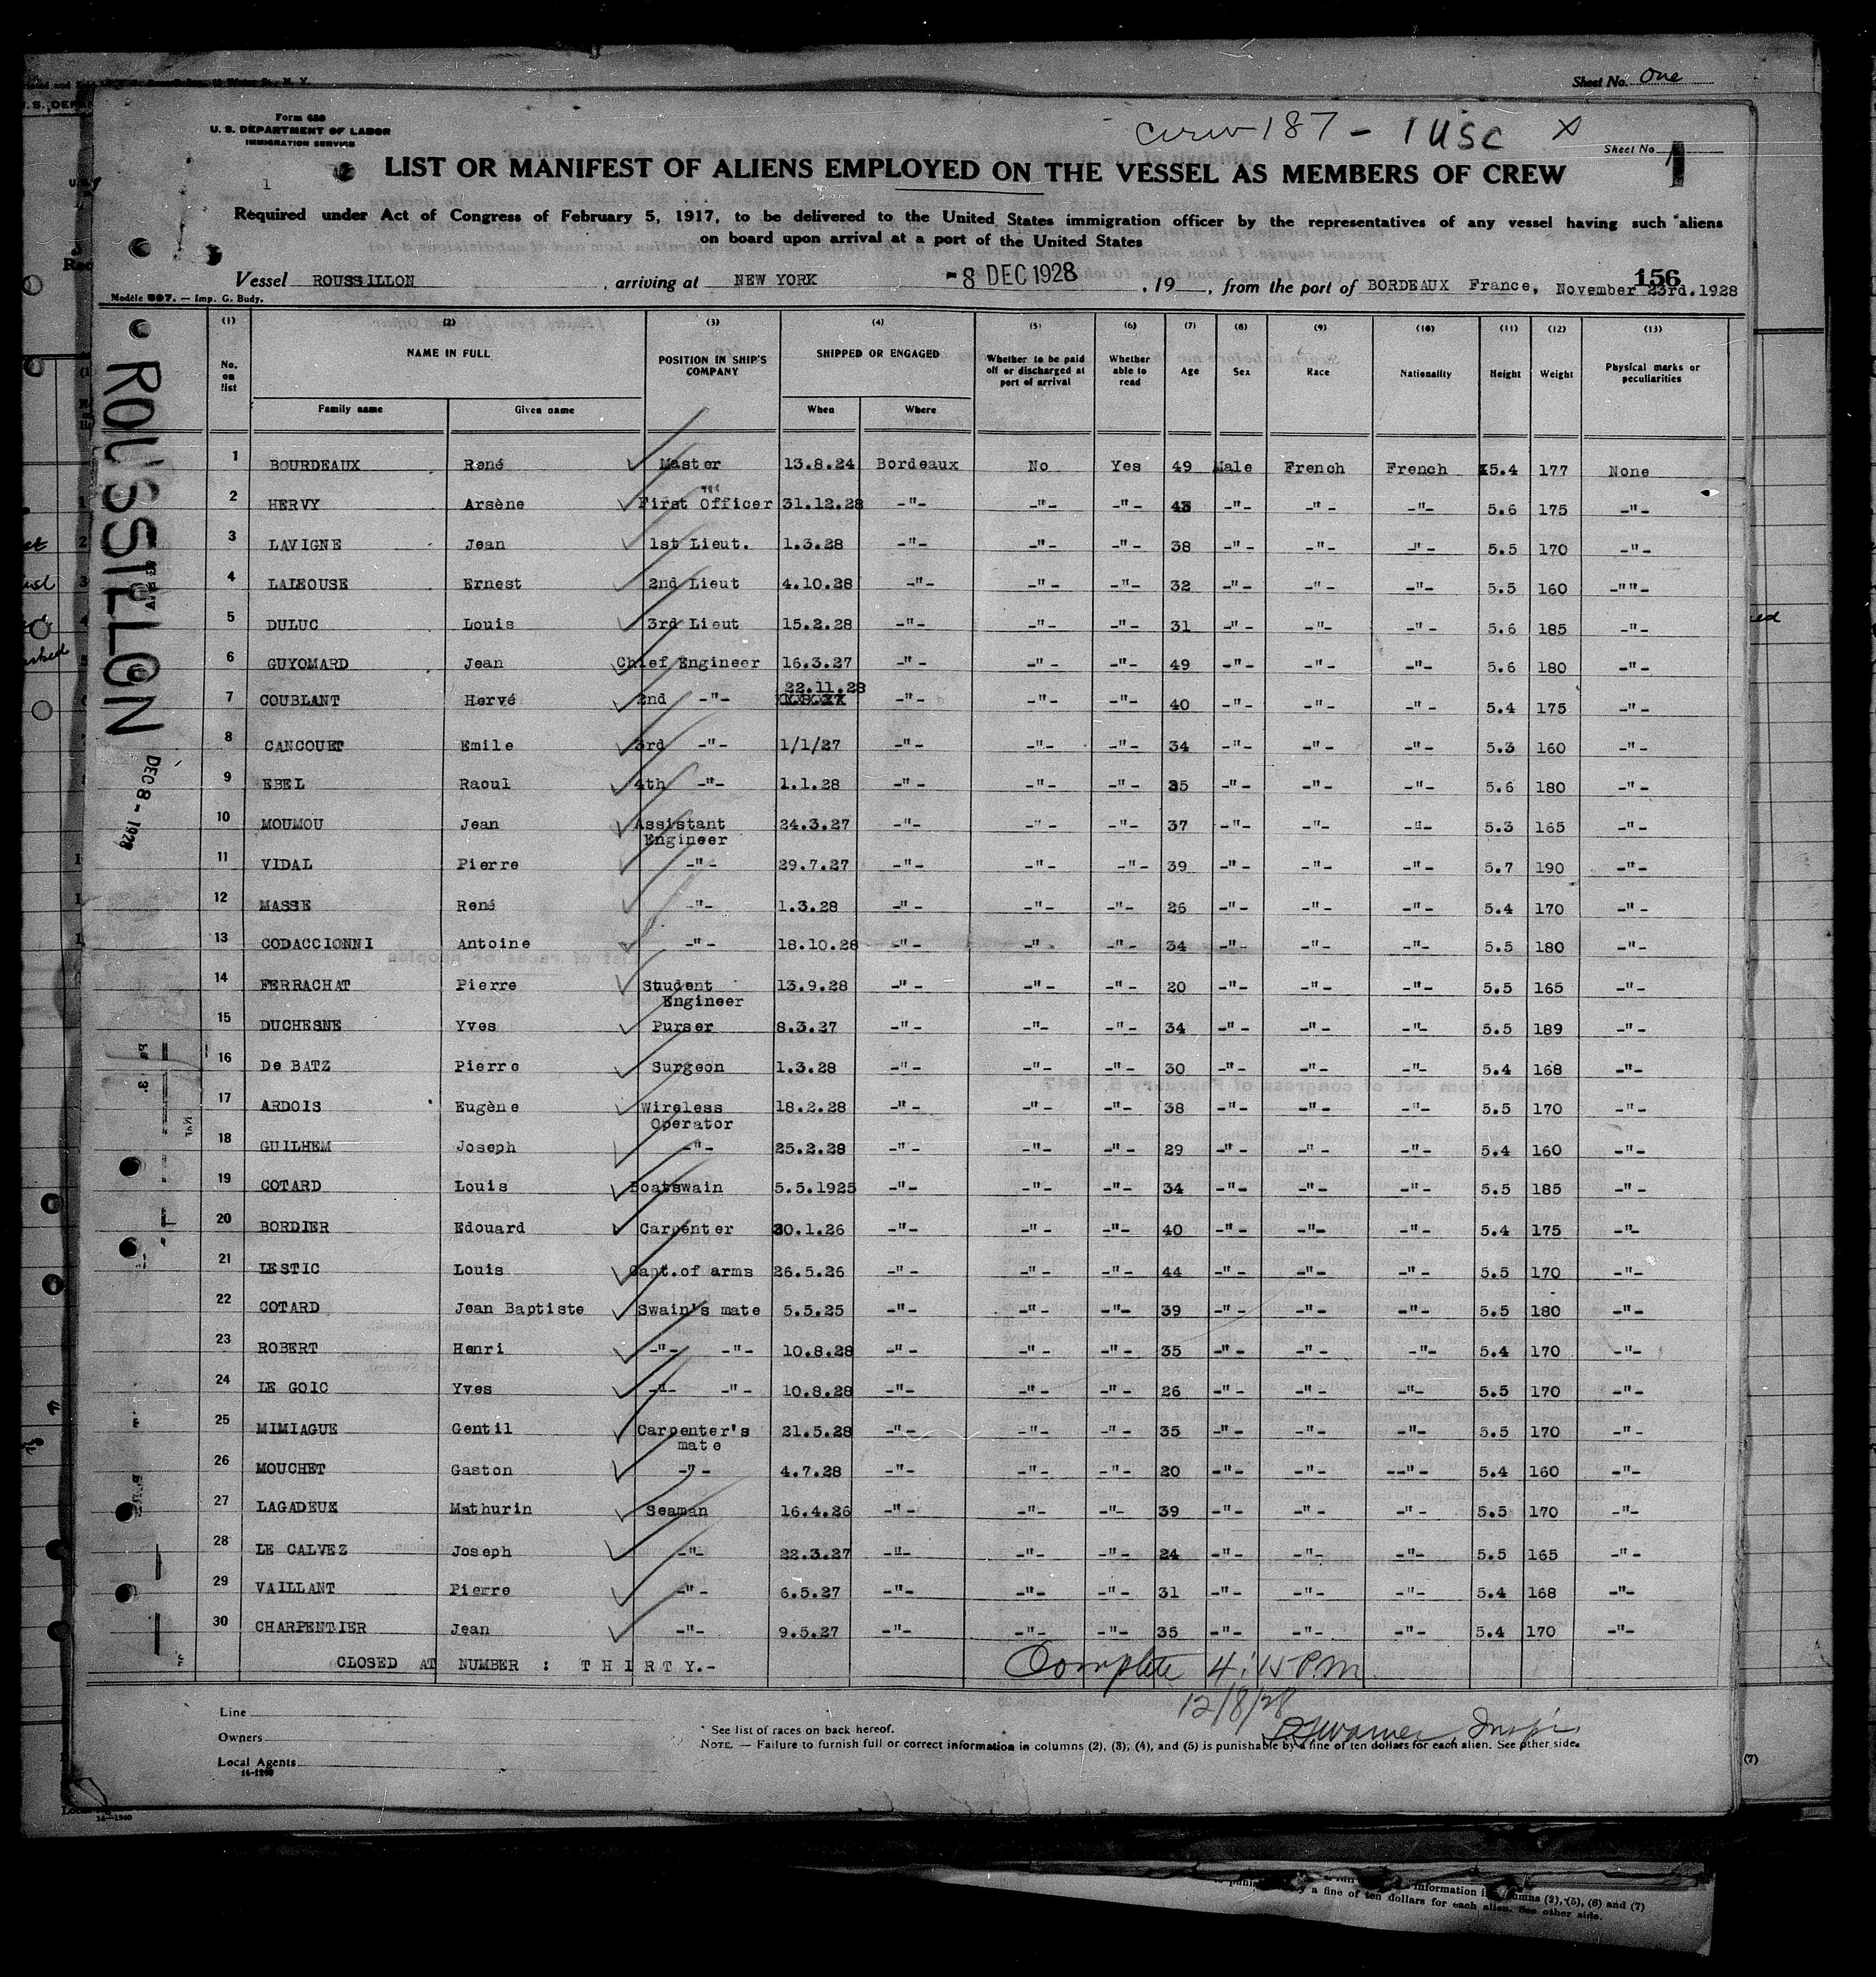 Sheet No. One
Form 689
U. S. DEPARTMENT OF LABOR
IMMIGRATION SERVICE
Crew 187 - 1 USC X
Sheet No. 1
LIST OR MANIFEST OF ALIENS EMPLOYED ON THE VESSEL AS MEMBERS OF CREW
Required under Act of Congress of February 5, 1917, to be delivered to the United States immigration officer by the representatives of any vessel having such aliens
on board upon arrival at a port of the United States
156
Vessel ROUSSILLON, arriving at NEW YORK -8 DEC 1928, 19, from the port of BORDEAUX France, November 23rd.1928
Modèle 597. — Imp. G. Budy.
ROUSSILLON
DEC 8 - 1928
(1) (2) (3) (4) (5) (6) (7) (8) (9) (10) (11) (12) (13)
No. on list NAME IN FULL POSITION IN SHIP'S COMPANY SHIPPED OR ENGAGED Whether to be paid off or discharged at port of arrival Whether able to read Age Sex Race Nationality Height Weight Physical marks or peculiarities
Family name Given name When Where
1 BOURDEAUX René Master 13.8.24 Bordeaux No Yes 49 Male French French 5.4 177 None
2 HERVY Arsène First Officer 31.12.28 -"- -"- -"- 43 -"- -"- -"- 5.6 175 -"-
3 LAVIGNE Jean 1st Lieut. 1.3.28 -"- -"- -"- 38 -"- -"- -"- 5.5 170 -"-
4 LALEOUSE Ernest 2nd Lieut 4.10.28 -"- -"- -"- 32 -"- -"- -"- 5.5 160 -""-
5 DULUC Louis 3rd Lieut 15.2.28 -"- -"- -"- 31 -"- -"- -"- 5.6 185 -"-
6 GUYOMARD Jean Chief Engineer 16.3.27 -"- -"- -"- 49 -"- -"- -"- 5.6 180 -"-
7 COUBLANT Hervé 2nd -"- 22.11.28 -"- -"- -"- 40 -"- -"- -"- 5.4 175 -"-
8 CANCOUET Emile 3rd -"- 1/1/27 -"- -"- -"- 34 -"- -"- -"- 5.3 160 -"-
9 EBEL Raoul 4th -"- 1.1.28 -"- -"- -"- 35 -"- -"- -"- 5.6 180 -"-
10 MOUMOU Jean Assistant Engineer 24.3.27 -"- -"- -"- 37 -"- -"- -"- 5.3 165 -"-
11 VIDAL Pierre -"- 29.7.27 -"- -"- -"- 39 -"- -"- -"- 5.7 190 -"-
12 MASSE René -"- 1.3.28 -"- -"- -"- 26 -"- -"- -"- 5.4 170 -"-
13 CODACCIONNI Antoine -"- 18.10.28 -"- -"- -"- 34 -"- -"- -"- 5.5 180 -"-
14 FERRACHAT Pierre Student Engineer 13.9.28 -"- -"- -"- 20 -"- -"- -"- 5.5 165 -"-
15 DUCHESNE Yves Purser 8.3.27 -"- -"- -"- 34 -"- -"- -"- 5.5 189 -"-
16 De BATZ Pierre Surgeon 1.3.28 -"- -"- -"- 30 -"- -"- -"- 5.4 168 -"-
17 ARDOIS Eugène Wireless Operator 18.2.28 -"- -"- -"- 38 -"- -"- -"- 5.5 170 -"-
18 GUILHEM Joseph -"- 25.2.28 -"- -"- -"- 29 -"- -"- -"- 5.4 160 -"-
19 COTARD Louis Boatswain 5.5.1925 -"- -"- -"- 34 -"- -"- -"- 5.5 185 -"-
20 BORDIER Edouard Carpenter 30.1.26 -"- -"- -"- 40 -"- -"- -"- 5.4 175 -"-
21 LESTIC Louis Capt.of arms 26.5.26 -"- -"- -"- 44 -"- -"- -"- 5.5 170 -"-
22 COTARD Jean Baptiste Swain's mate 5.5.25 -"- -"- -"- 39 -"- -"- -"- 5.5 180 -"-
23 ROBERT Henri -"- -"- 10.8.28 -"- -"- -"- 35 -"- -"- -"- 5.4 170 -"-
24 LE GOIC Yves -"- -"- 10.8.28 -"- -"- -"- 26 -"- -"- -"- 5.5 170 -"-
25 MIMIAGUE Gentil Carpenter's mate 21.5.28 -"- -"- -"- 35 -"- -"- -"- 5.5 170 -"-
26 MOUCHET Gaston -"- 4.7.28 -"- -"- -"- 20 -"- -"- --"- 5.4 160 -"-
27 LAGADEUE Mathurin Seaman 16.4.26 -"- -"- -"- 39 -"- -"- -"- 5.5 170 -"-
28 LE CALVEZ Joseph -"- 22.3.27 -"- -"- -"- 24 -"- -"- -"- 5.5 165 -"-
29 VAILLANT Pierre -"- 6.5.27 -"- -"- -"- 31 -"- -"- -"- 5.4 168 -"-
30 CHARPENTIER Jean -"- 9.5.27 -"- -"- -"- 35 -"- -"- -"- 5.4 170 -"-
CLOSED AT NUMBER : T H I R T Y.-
Complete 4:15 PM
12/8/28
Warner, Inspr.
Line
Owners
Local Agents
14-1240
* See list of races on back hereof.
NOTE. — Failure to furnish full or correct information in columns (2), (3), (4), and (5) is punishable by a fine of ten dollars for each alien. See other side.
(7)
14-1240
information in columns (2), (5), (6) and (7)
a fine of ten dollars for each alien. See other side.